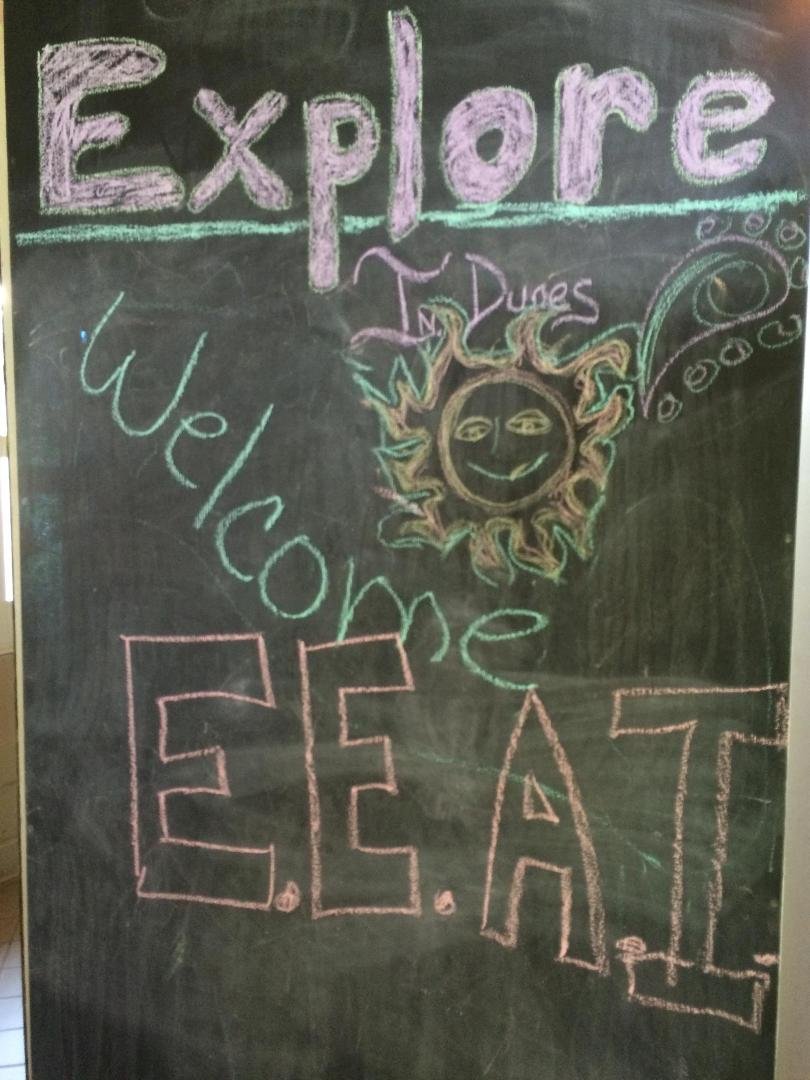 Explore
IN. Dunes
Welcome
E.E.A.T.